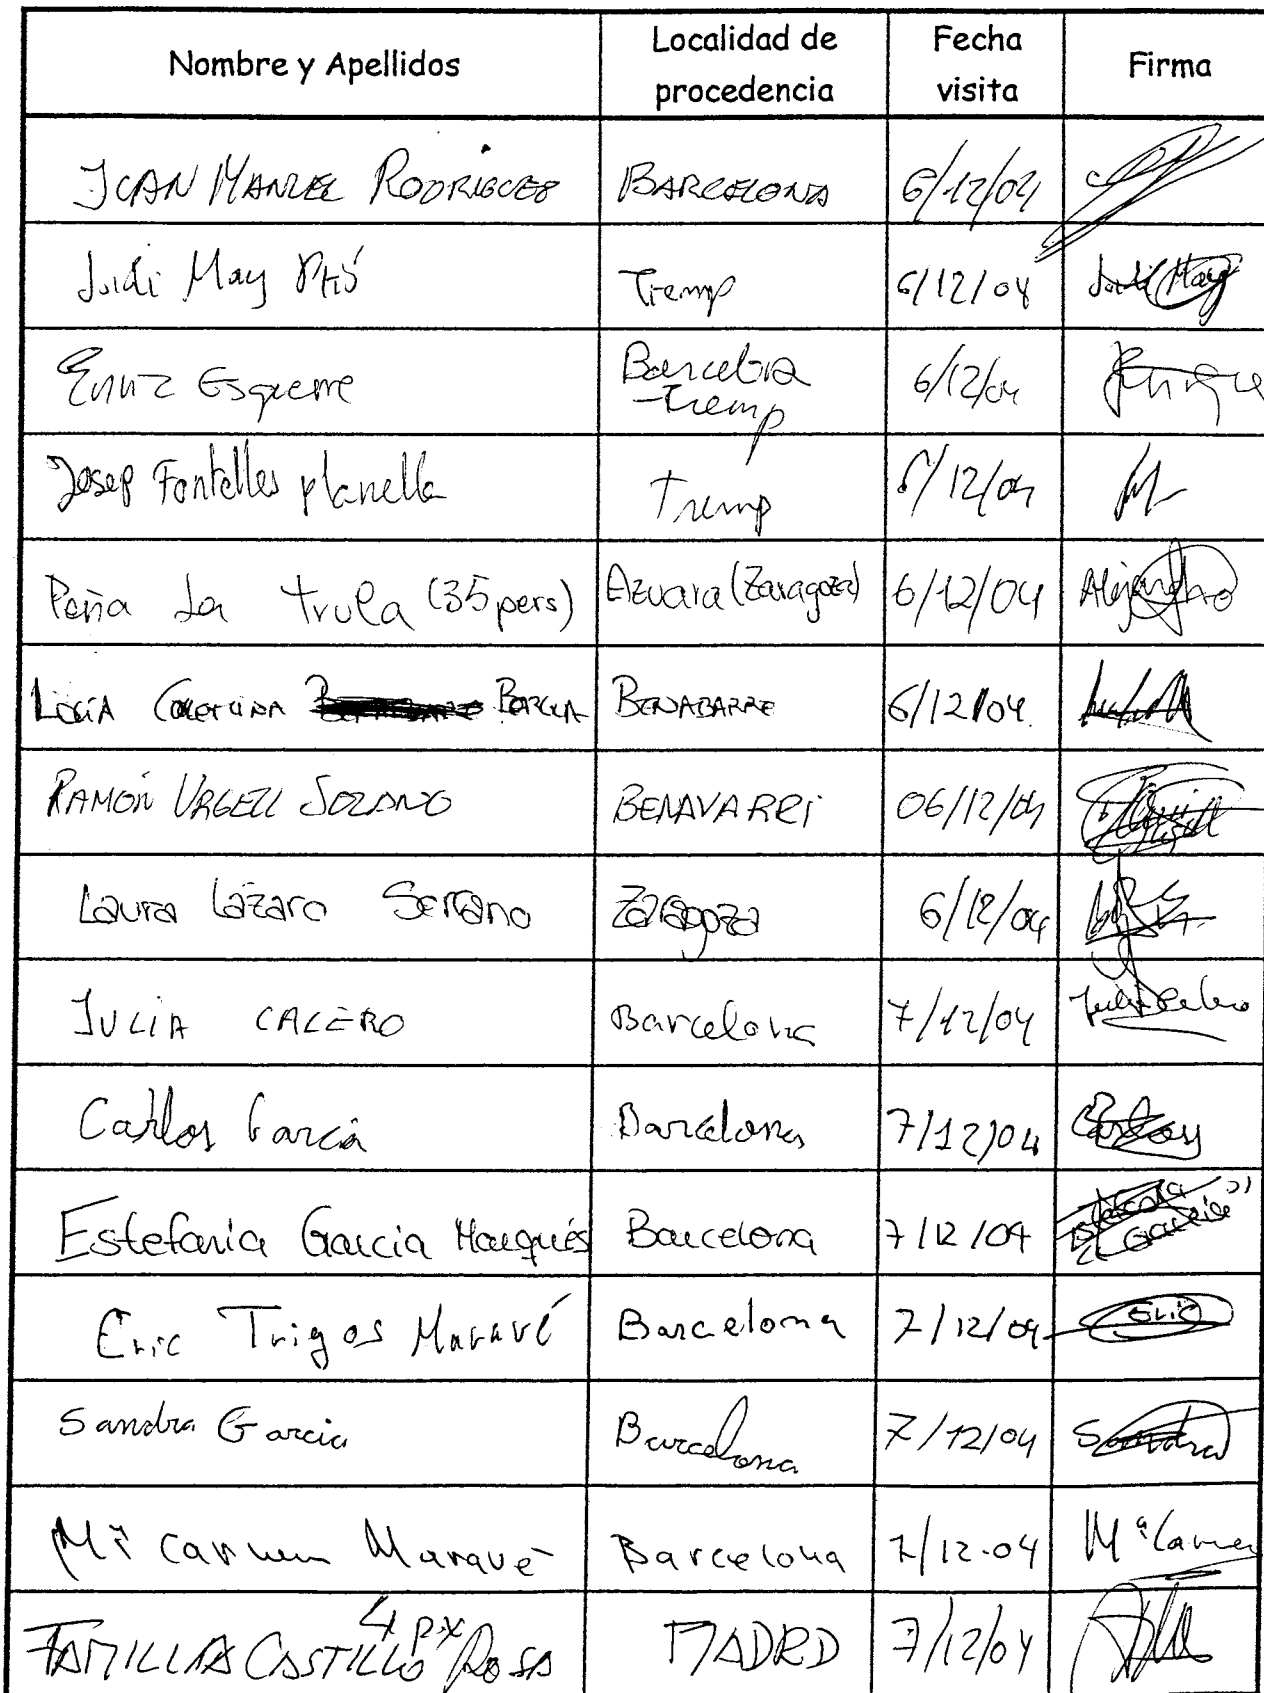 Nombre y Apellidos Localidad de procedencia Fecha visita Firma
JUAN MANUEL RODRIGUEZ BARCELONA 6/12/04
Judi May Tremp 6/12/04 Judi May
Esquerre Barcelona -Tremp 6/12/04 Enrique
Josep Fontelles planella Tremp 6/12/04
Peña La trula (35 pers) Azuara (Zaragoza) 6/12/04 Alejandro
BENABARRE 6/12/04
RAMÓN URGELL SOLANO BENAVARRI 06/12/04
Laura Lázaro Serrano Zaragoza 6/12/04
JULIA CALERO Barcelona 7/12/04 Julia Calero
Carlos García Barcelona 7/12/04 Carlos
Estefania Garcia Marqués Barcelona 7/12/04 Estefania Garcia
Eric Trigos Maravé Barcelona 7/12/04 Eric
Sandra Garcia Barcelona 7/12/04 Sandra
Mª Carmen Maravé Barcelona 7/12.04 Mª Carmen
FAMILIA CASTILLO ROSA 4 px MADRD 7/12/04